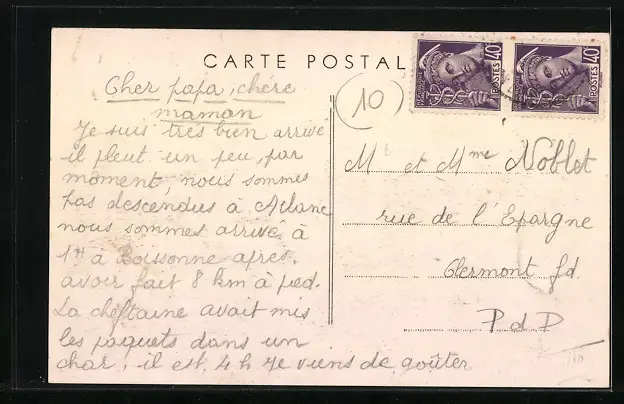 CARTE POSTALE
POSTES 40
POSTES 40
10
Cher papa, chère
maman
Je suis très bien arrivé
il pleut un peu, par
moment, nous sommes
pas descendus à Arlanc
nous sommes arrivé à
1H à Boissonne apres.
avoir fait 8 km à pied.
La cheftaine avait mis
les paquets dans un
char, il est 4 h Je viens de goûter
Mr et Mme Noblet
rue de l'Epargne
Clermont fd.
P d D